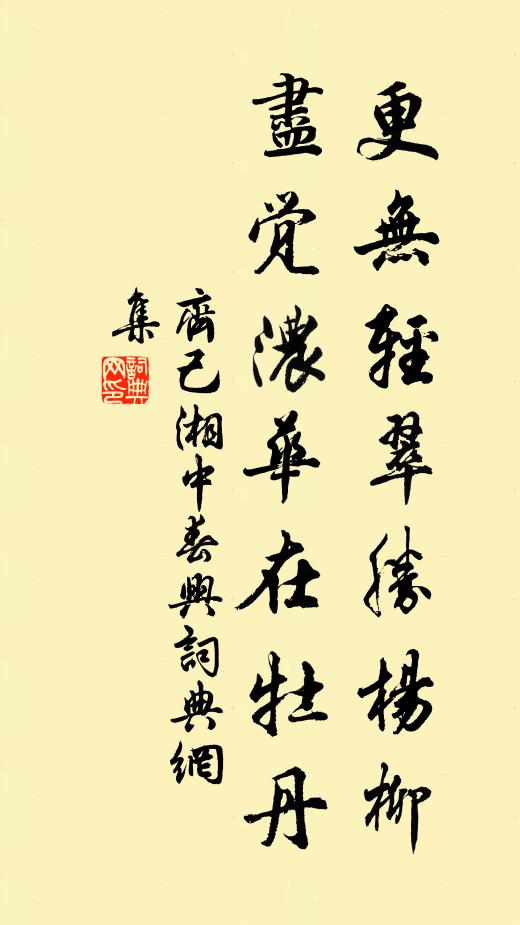 更無輕翠勝楊柳
盡覺濃華在牡丹
齊己湘中春興詞典網
集
詞典
網印